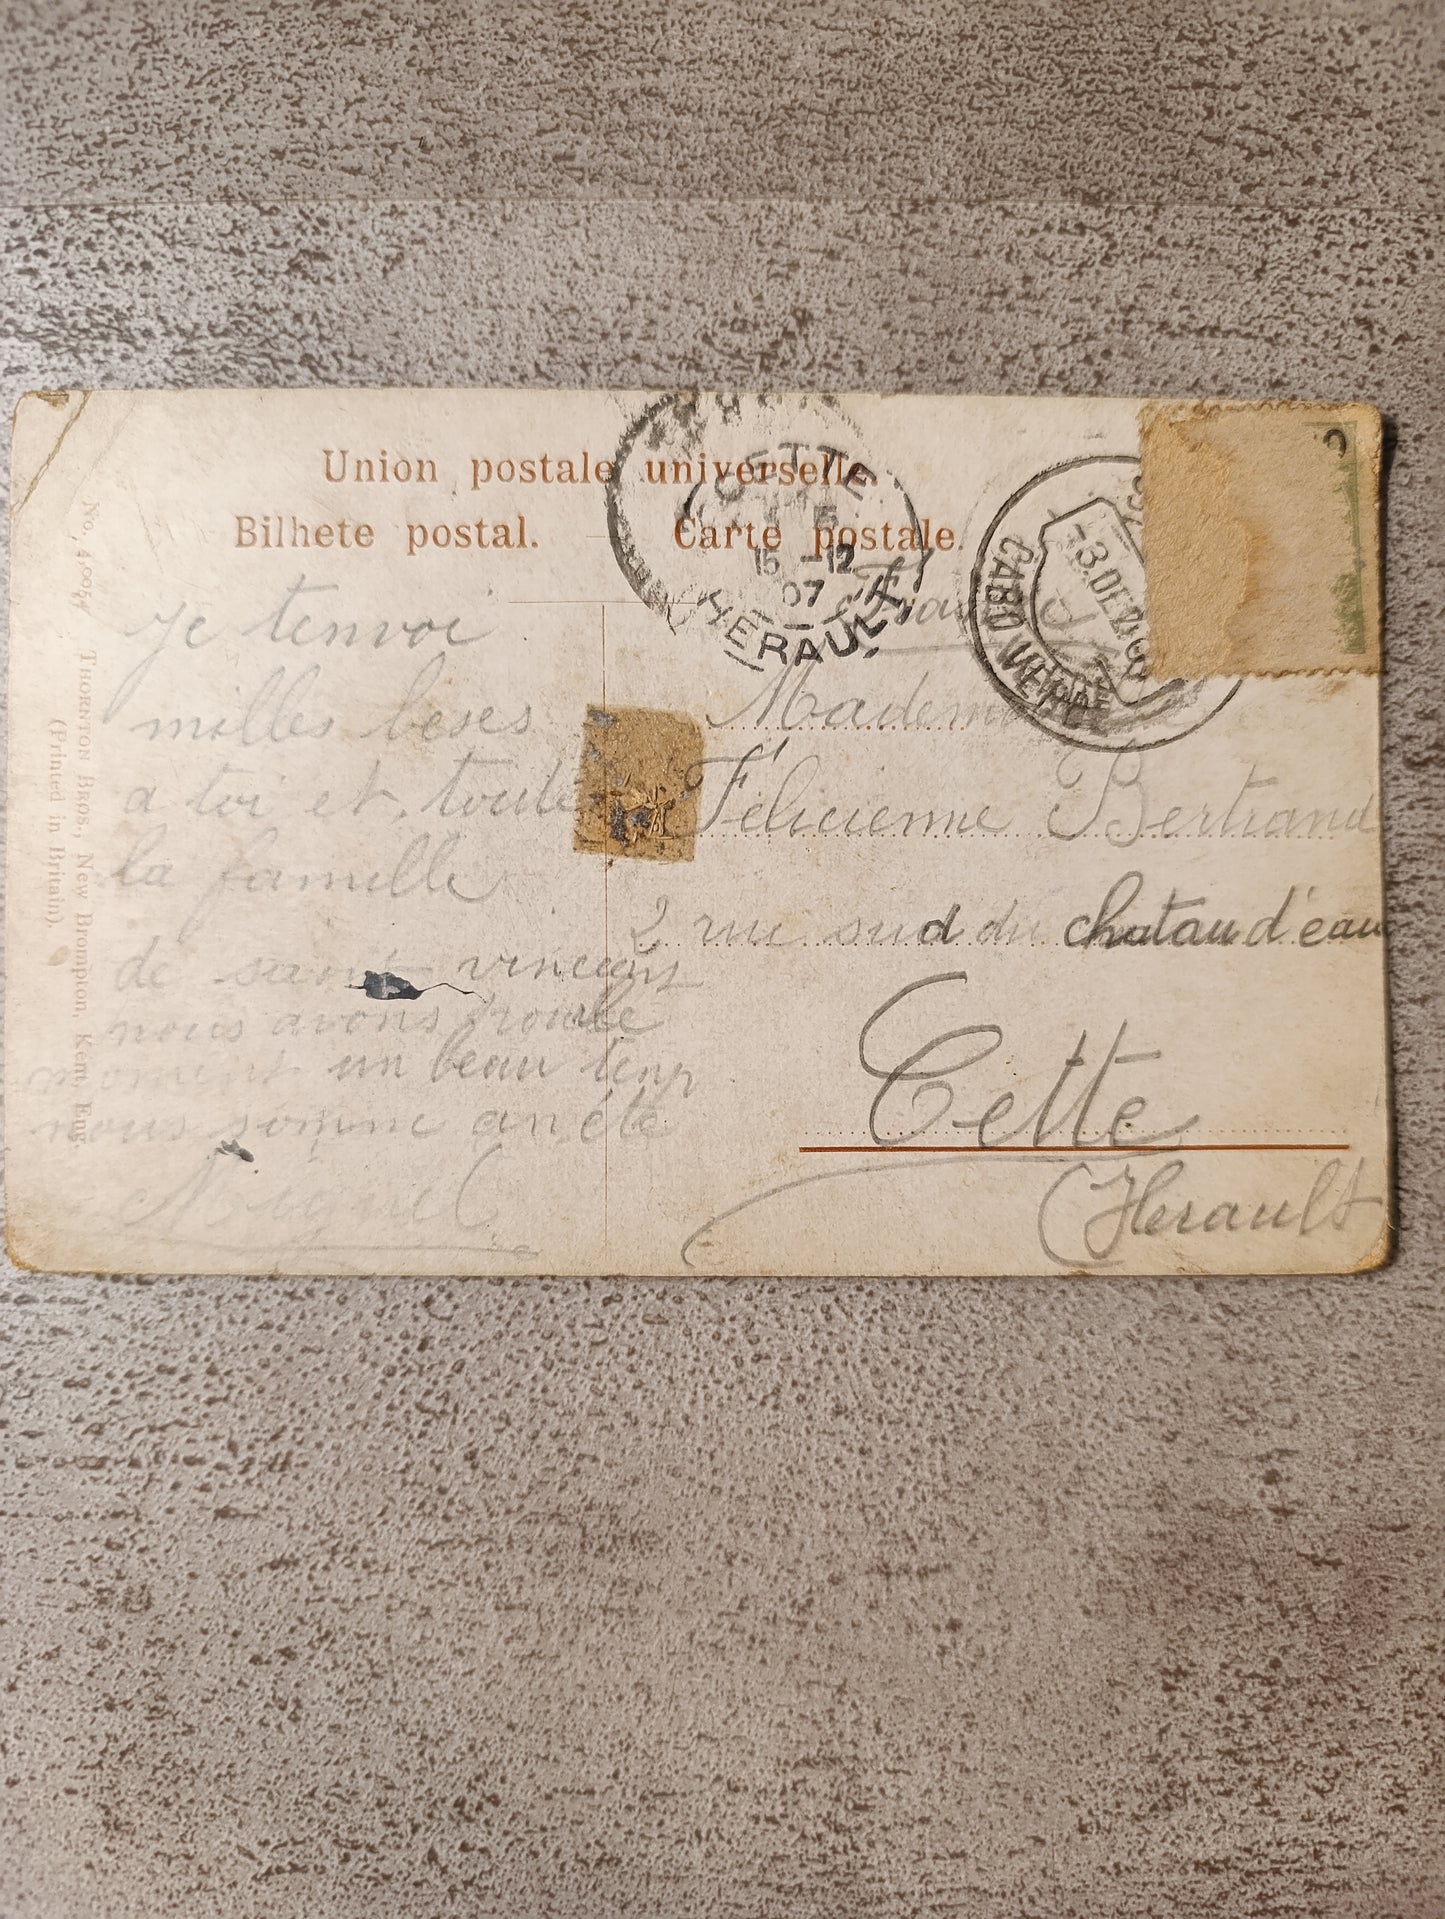 Union postale universelle.
Bilhete postal. Carte postale.
No. 4,005
THORNTON BROS., NEW BROMPTON, KENT, ENG.
(Printed in Britain).
CETTE
15 -12
07
HERAULT
CABO VERDE
-3.DE
je tenvoi
milles beses
a toi et, toute
la famille
de saint vincent
nous avons
moment un beau temp
nous somme an été
Miguel
France
Mademoi
Félicienne Bertrand
2 rue sud du chatau d'eau
Cette
(Herault